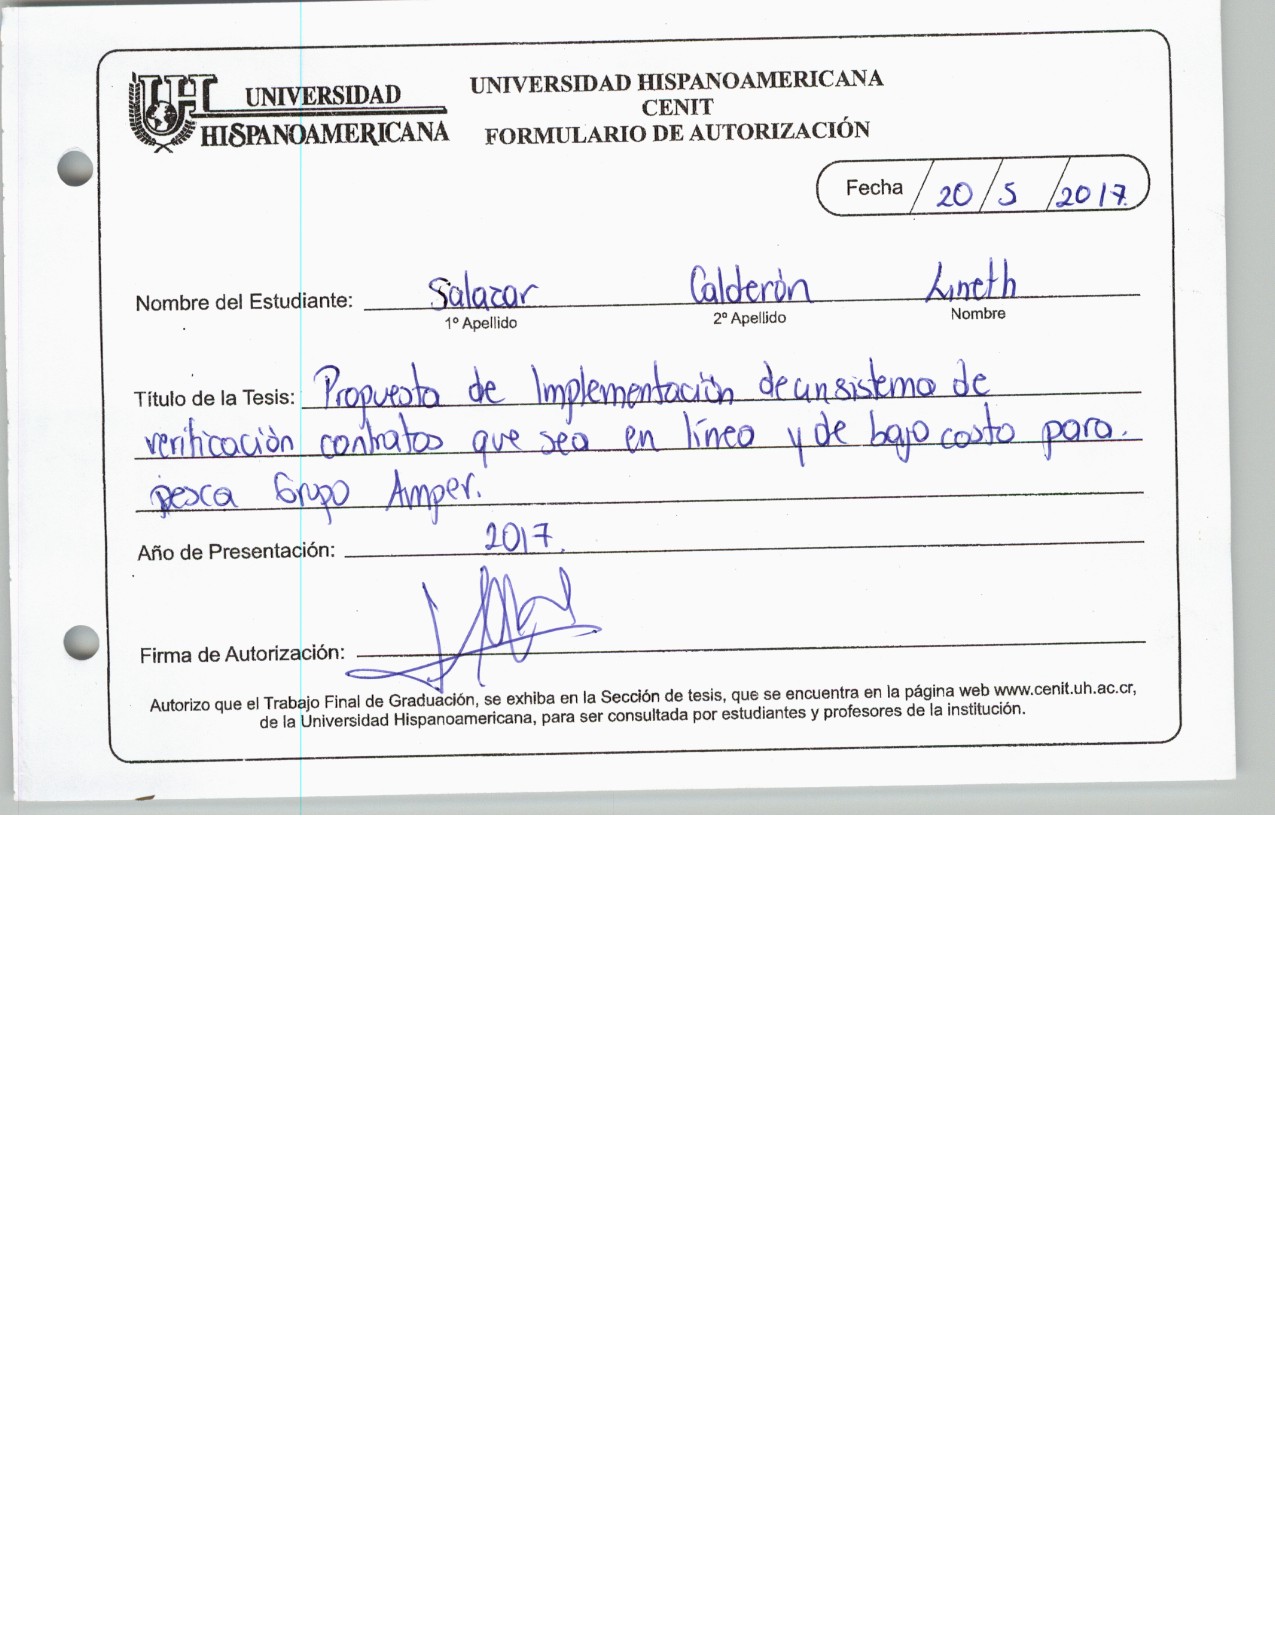 UNIVERSIDAD
HISPANOAMERICANA
UNIVERSIDAD HISPANOAMERICANA
CENIT
FORMULARIO DE AUTORIZACIÓN
Fecha 20/5/2017
Nombre del Estudiante: Salazar Calderón Lineth
1º Apellido 2º Apellido Nombre
Título de la Tesis: Propuesta de Implementación de un sistema de
verificación contratos que sea en línea y de bajo costo para.
pesca Grupo Amper.
Año de Presentación: 2017.
Firma de Autorización:
Autorizo que el Trabajo Final de Graduación, se exhiba en la Sección de tesis, que se encuentra en la página web www.cenit.uh.ac.cr,
de la Universidad Hispanoamericana, para ser consultada por estudiantes y profesores de la institución.